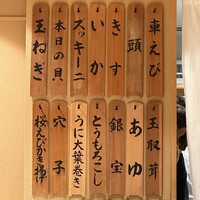 車えび
頭
きす
いか
ズッキーニ
本日の貝
玉ねぎ
玉取茸
あゆ
銀宝
とうもろこし
うに大葉巻き
穴子
桜えびかき揚げ